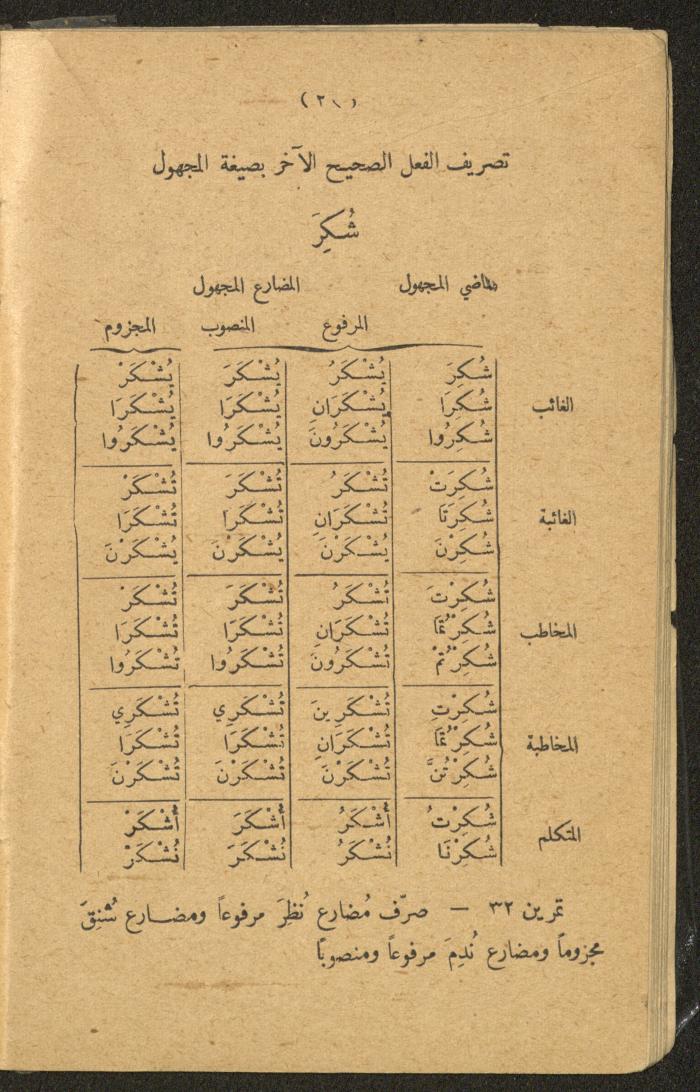 (٢١)
تصريف الفعل الصحيح الآخر بصيغة المجهول
شُكِرَ
ماضي المجهول المضارع المجهول
المرفوع المنصوب المجزوم
الغائب شُكِرَ يُشْكَرُ يُشْكَرَ يُشْكَرْ
شُكِرَا يُشْكَرَانِ يُشْكَرَا يُشْكَرَا
شُكِرُوا يُشْكَرُونَ يُشْكَرُوا يُشْكَرُوا
الغائبة شُكِرَتْ تُشْكَرُ تُشْكَرَ تُشْكَرْ
شُكِرَتَا تُشْكَرَانِ تُشْكَرَا تُشْكَرَا
شُكِرْنَ يُشْكَرْنَ يُشْكَرْنَ يُشْكَرْنَ
المخاطب شُكِرْتَ تُشْكَرُ تُشْكَرَ تُشْكَرْ
شُكِرْتُمَا تُشْكَرَانِ تُشْكَرَا تُشْكَرَا
شُكِرْتُمْ تُشْكَرُونَ تُشْكَرُوا تُشْكَرُوا
المخاطبة شُكِرْتِ تُشْكَرِينَ تُشْكَرِي تُشْكَرِي
شُكِرْتُمَا تُشْكَرَانِ تُشْكَرَا تُشْكَرَا
شُكِرْتُنَّ تُشْكَرْنَ تُشْكَرْنَ تُشْكَرْنَ
المتكلم شُكِرْتُ أُشْكَرُ أُشْكَرَ أُشْكَرْ
شُكِرْنَا نُشْكَرُ نُشْكَرَ نُشْكَرْ
تمرين ٣٢ — صرّف مُضارع نُظِرَ مرفوعاً ومضارع شُنِقَ
مجزوماً ومضارع نُدِمَ مرفوعاً ومنصوباً